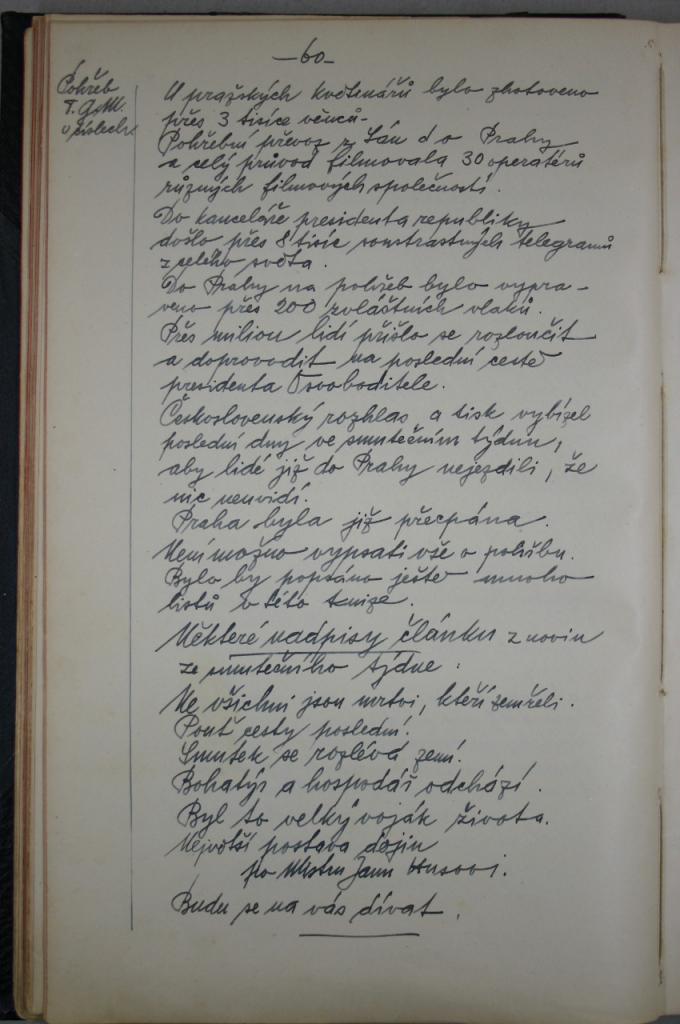 -60-
Pohřeb
T. G. M.
v číslech.
U pražských květinářů bylo zhotoveno
přes 3 tisíce věnců.
Pohřební převoz z Lán do Prahy
a celý průvod filmovala 30 operatérů
různých filmových společností.
Do kanceláře presidenta republiky
došlo přes 8 tisíc soustrastných telegramů
z celého světa.
Do Prahy na pohřeb bylo vypra-
veno přes 200 zvláštních vlaků.
Přes milion lidí přišlo se rozloučit
a doprovodit na poslední cestě
presidenta Osvoboditele.
Československý rozhlas a tisk vybízel
poslední dny ve smutečním týdnu,
aby lidé již do Prahy nejezdili, že
nic neuvidí.
Praha byla již přecpána.
Není možno vypsati vše o pohřbu.
Bylo by popsáno ještě mnoho
listů v této knize.
Některé nadpisy článků z novin
ze smutečního týdne.
Ne všichni jsou mrtvi, kteří zemřeli.
Pouť cesty poslední.
Smutek se rozlévá zemí.
Bohatýr a hospodář odchází.
Byl to velký voják života.
Největší postava dějin
po Mistru Janu Husovi.
Budu se na vás dívat.